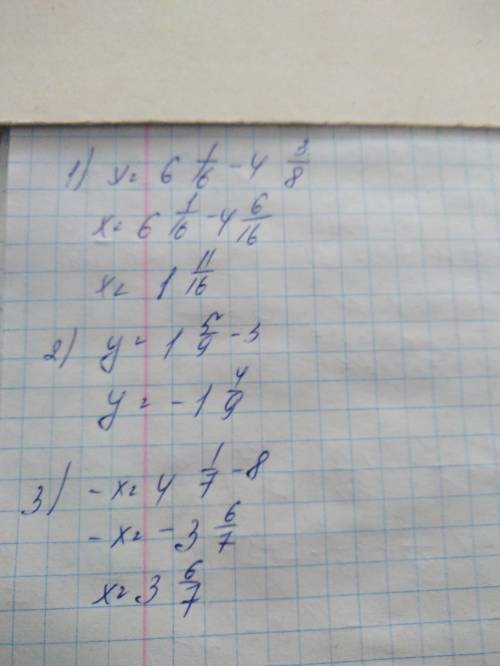 1) x = 6 1/16 - 4 3/8
x = 6 1/16 - 4 6/16
x = 1 11/16
2) y = 1 5/9 - 3
y = -1 4/9
3) -x = 4 1/7 - 8
-x = -3 6/7
x = 3 6/7